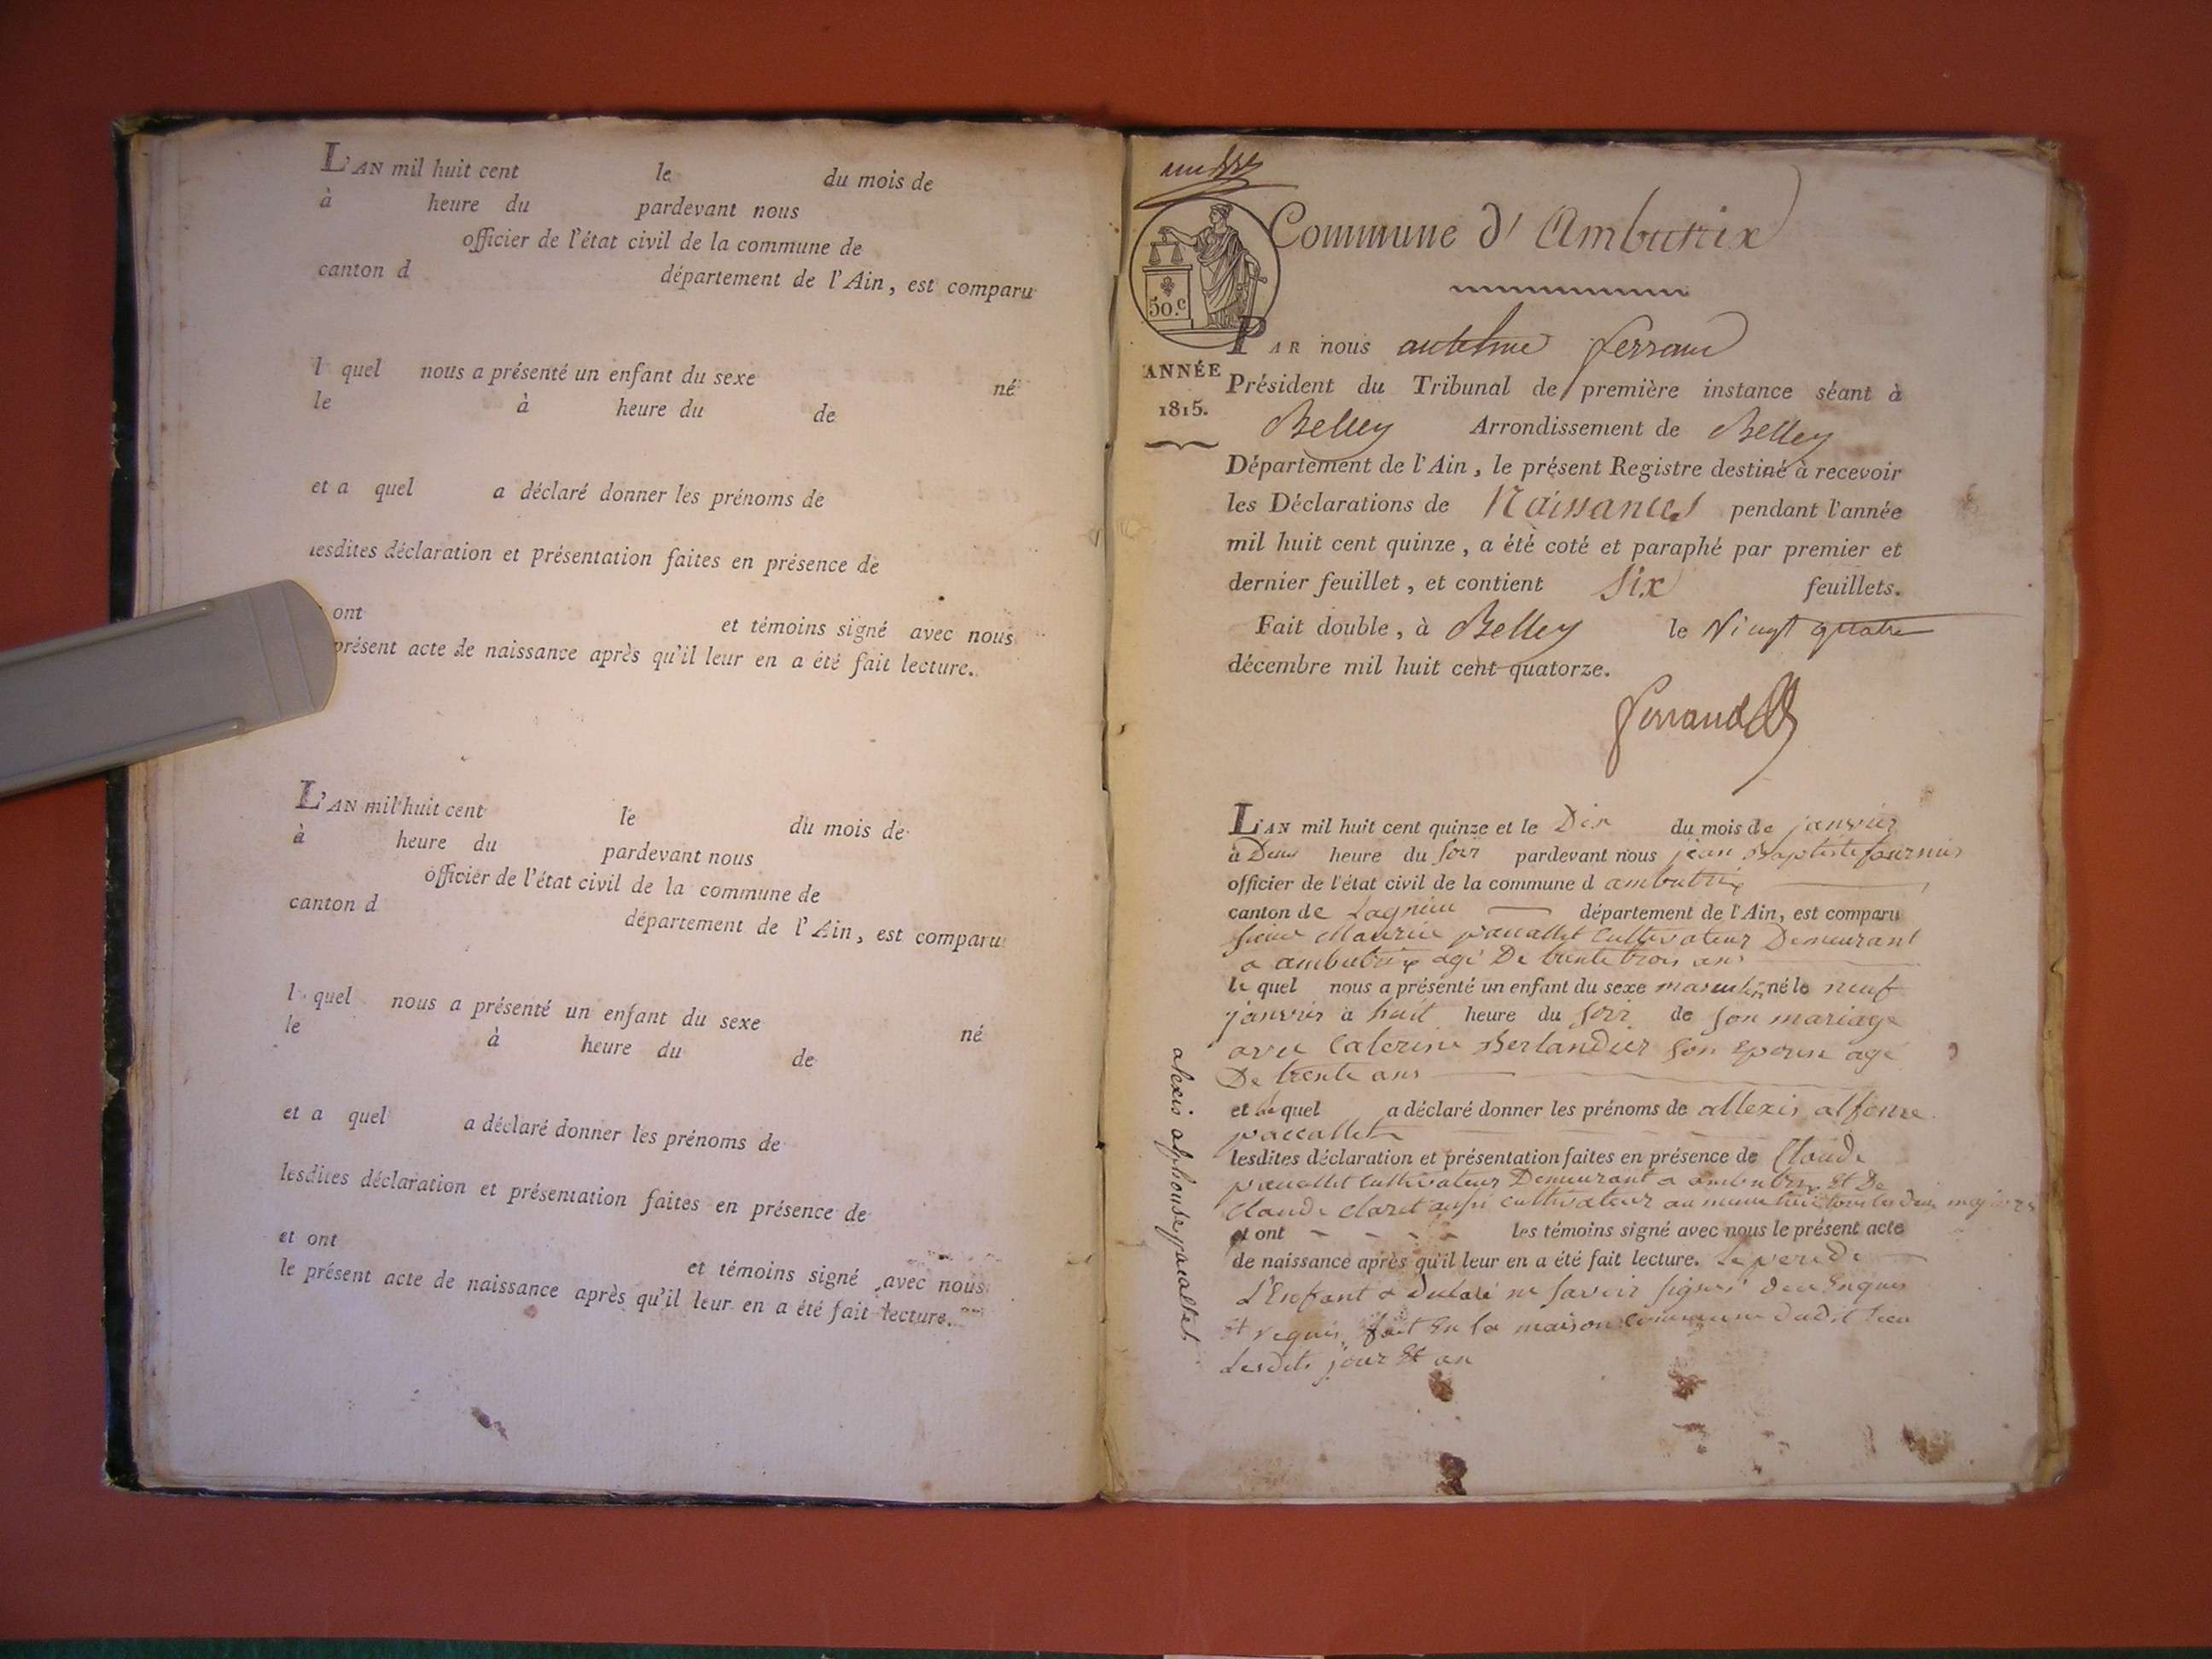 L'AN mil huit cent le du mois de
à heure du pardevant nous
officier de l'état civil de la commune de
canton d département de l'Ain, est comparu
l quel nous a présenté un enfant du sexe né
le à heure du de
et a quel a déclaré donner les prénoms de
lesdites déclaration et présentation faites en présence de
ont et témoins signé avec nous
présent acte de naissance après qu'il leur en a été fait lecture.
L'AN mil huit cent le du mois de
à heure du pardevant nous
officier de l'état civil de la commune de
canton d département de l'Ain, est comparu
l quel nous a présenté un enfant du sexe né
le à heure du de
et a quel a déclaré donner les prénoms de
lesdites déclaration et présentation faites en présence de
et ont et témoins signé avec nous
le présent acte de naissance après qu'il leur en a été fait lecture.
Commune d'Ambutrix
50.c
ANNÉE
1815.
PAR nous antelme ferrand
Président du Tribunal de première instance séant à
Belley Arrondissement de Belley
Département de l'Ain, le présent Registre destiné à recevoir
les Déclarations de Naissances pendant l'année
mil huit cent quinze, a été coté et paraphé par premier et
dernier feuillet, et contient Six feuillets.
Fait double, à Belley le Vingt quatre
décembre mil huit cent quatorze.
ferrand
L'AN mil huit cent quinze et le Dix du mois de janvier
à Deux heure du soir pardevant nous jean Baptiste fournier
officier de l'état civil de la commune d ambutrix
canton de Lagnieu département de l'Ain, est comparu
sieur Maurice paccallet Cultivateur Demeurant
a ambutrix agé De trente trois ans
le quel nous a présenté un enfant du sexe masculin né le neuf
janvier à huit heure du soir de son mariage
avec Caterine Berlandier son epouse agé
De trente ans
et le quel a déclaré donner les prénoms de allexis alfonse
paccallet
lesdites déclaration et présentation faites en présence de Claude
paccallet cultivateur Demeurant a ambutrix Et De
Claude Claret aussi cultivateur au meme lieu tous les deux majeurs
et ont les témoins signé avec nous le présent acte
de naissance après qu'il leur en a été fait lecture. Le pere de
L'Enfant a Declaré ne savoir signer de ce Enquis
Et requis fait En la maison commune dudit lieu
Lesdits jour Et an
alexis alphonse pacallet